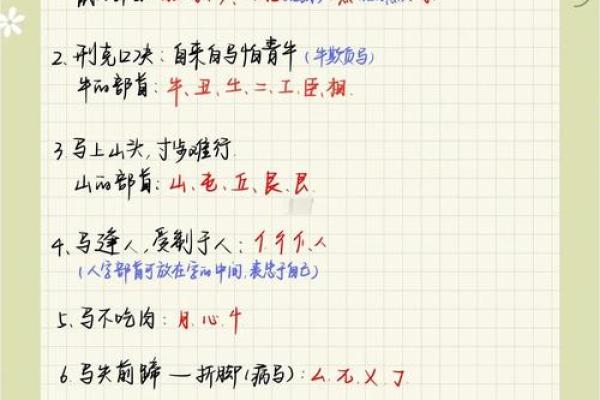 2. 刑克口决：自来白马怕青牛（牛欺负马）
牛的部首：牛、丑、生、二、工、臣、相.
3 马上山头，寸步难行.
山的部首：山、屯、丘、艮、艮.
4、马逢人，受制于人：亻彳亻、人
（人字部首可放在字的中间，表忠于自己）
5、马不吃肉：月、心、忄
6. 马失前蹄 — 折脚（病马）：ㄥ、兀、乂、㇆.